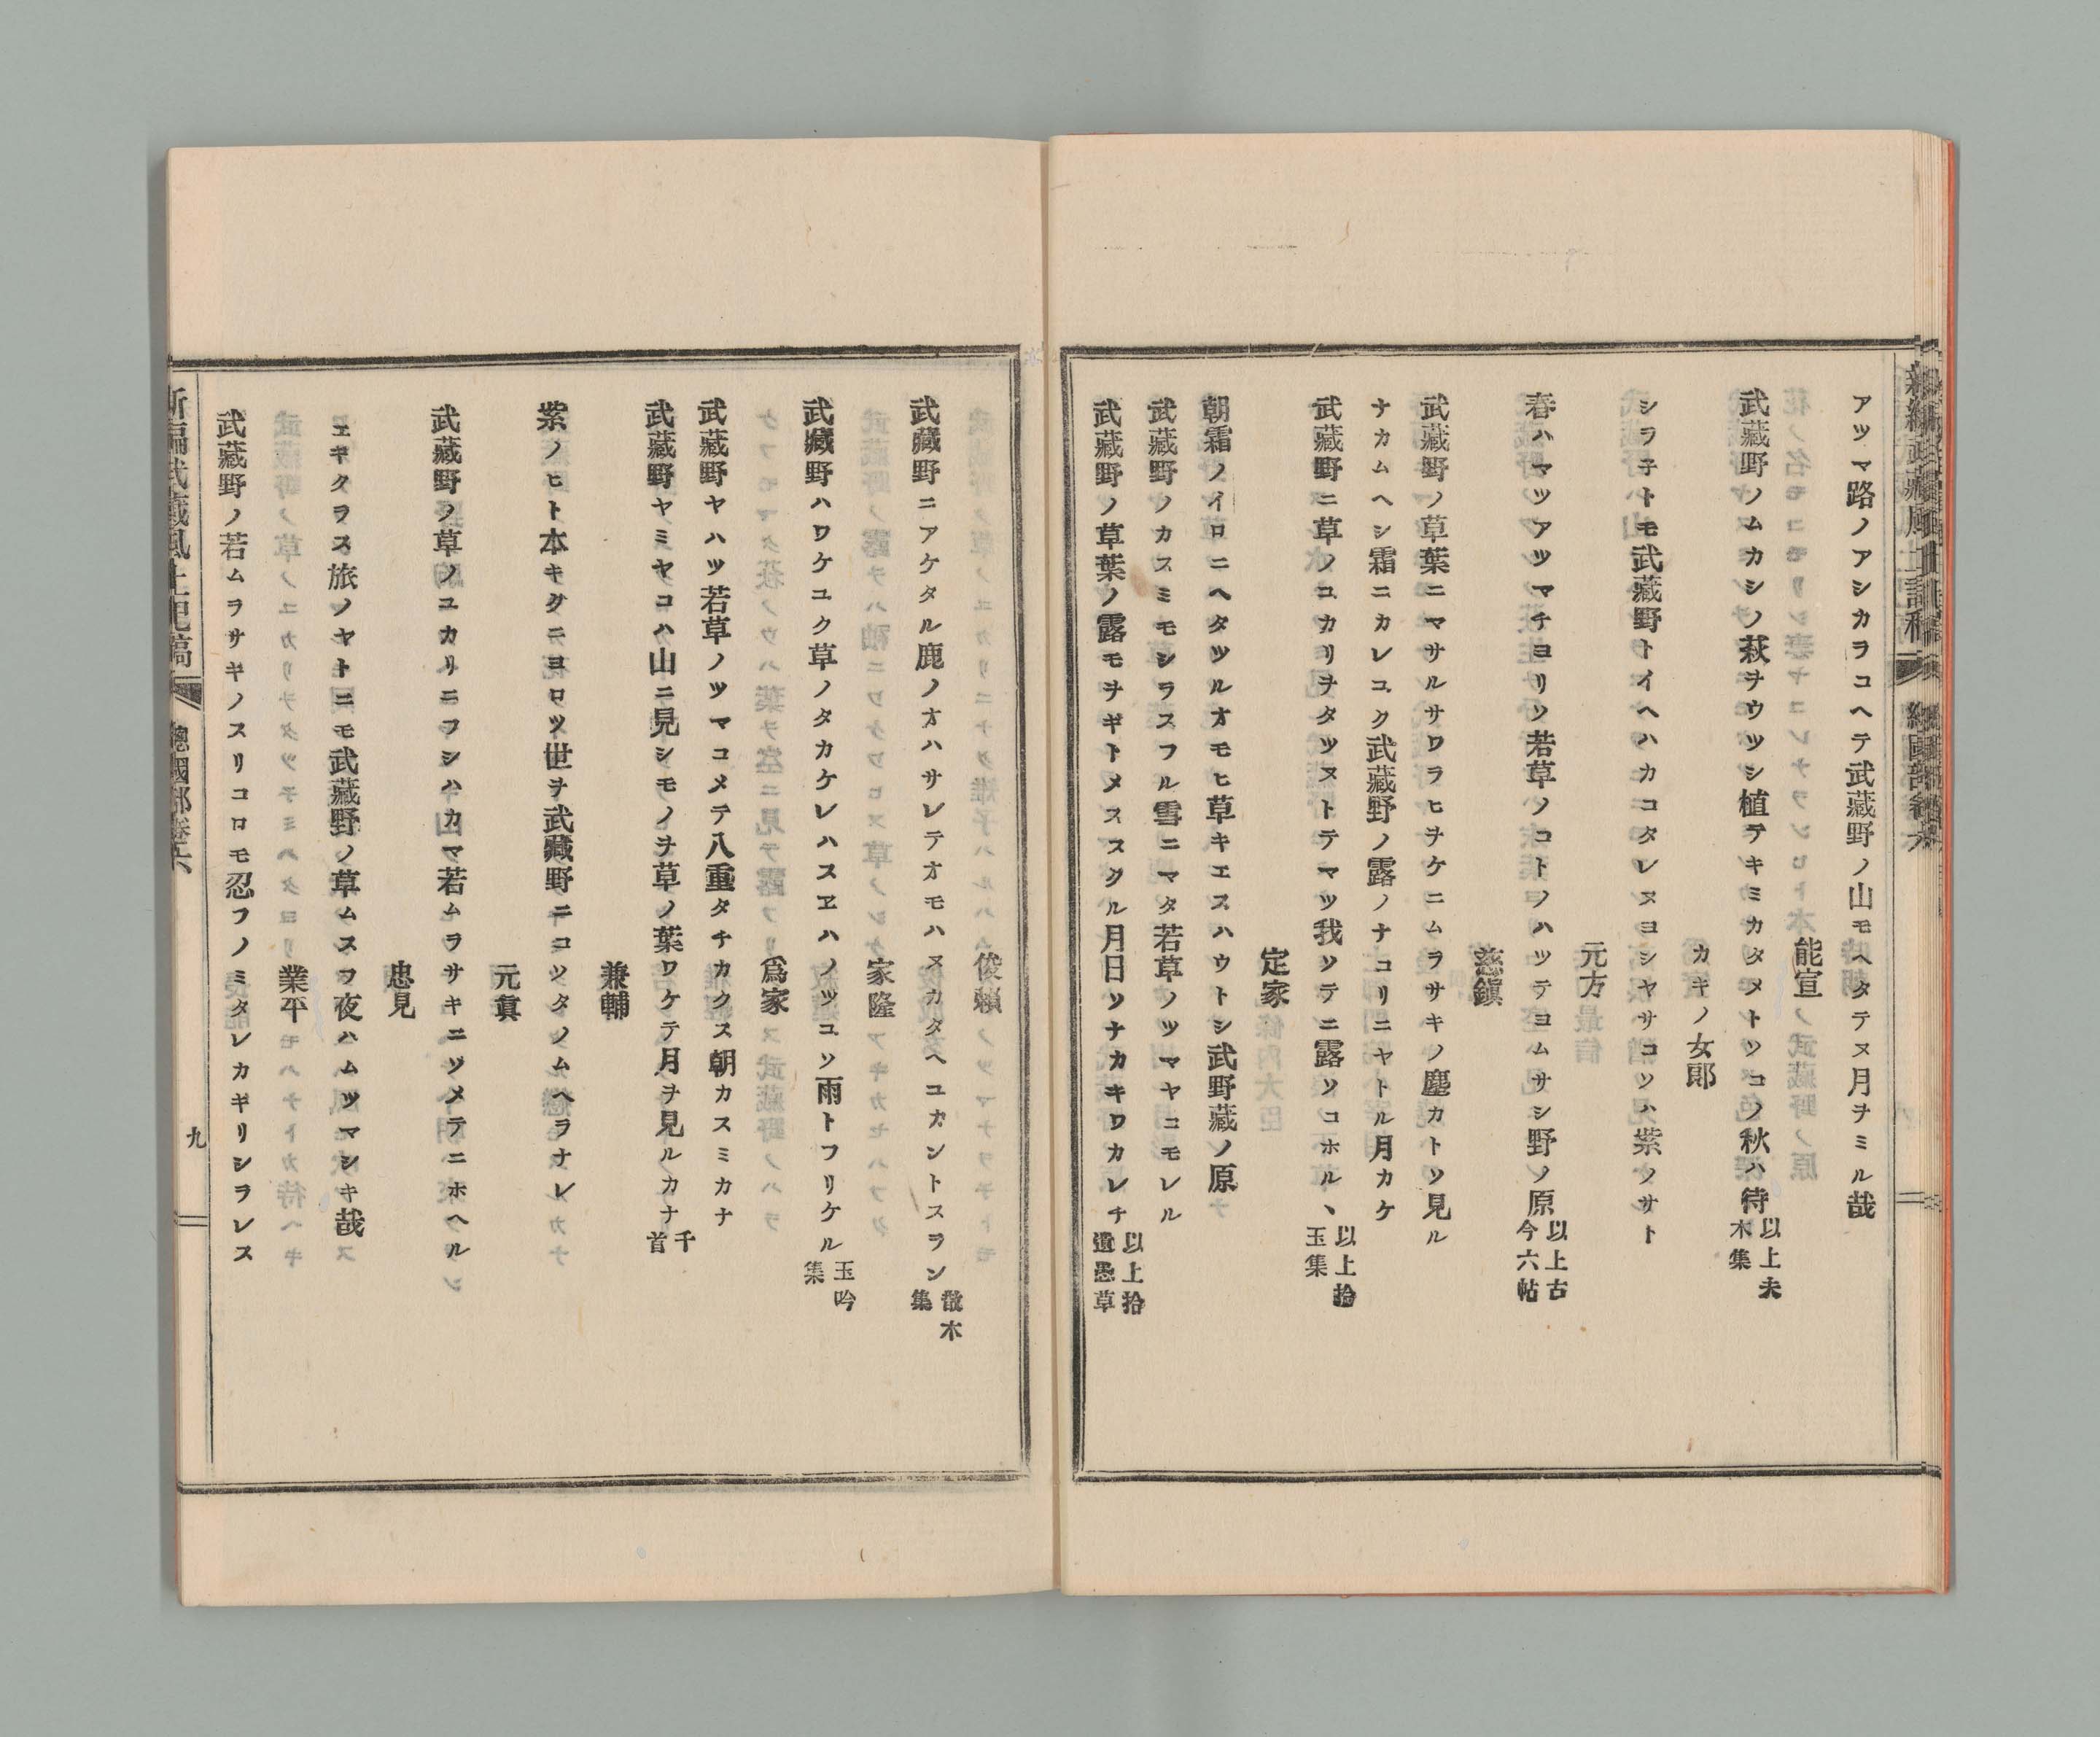 アツマ路ノアシカラコヘテ武藏野ノ山モヘタテヌ月ヲミル哉
能宣
武藏野ノムカシノ萩ヲウツシ植テキミカタメトソコノ秋ハ待以上夫木集
カキノ女郎
シラ子トモ武藏野トイヘハカコタレヌヨシヤサコソハ紫ノサト
元方
春ハマツアツマチヨリソ若草ノコトノハツテヨムサシ野ノ原以上古今六帖
慈鎭
武藏野ノ草葉ニマサルサワラヒヲケニムラサキノ塵カトソ見ル
ナカムヘシ霜ニカレユク武藏野ノ露ノナコリニヤトル月カケ
武藏野ニ草ノユカリヲタツヌトテマツ我ソテニ露ソコホルヽ以上拾玉集
定家
朝霜ノイロニヘタツルオモヒ草キエスハウトシ武野藏ノ原
武藏野ノカスミモシラスフル雪ニマタ若草ノツマヤコモレル
武藏野ノ草葉ノ露モヲギトメススクル月日ソナカキワカレチ以上拾遺愚草
俊賴
武藏野ニアケタル鹿ノオハサレテオモハヌカタヘユカントスラン散木集
家隆
武藏野ハワケユク草ノタカケレハスヱハノツユソ雨トフリケル玉吟集
爲家
武藏野ヤハツ若草ノツマコメテ八重タチカクス朝カスミカナ
武藏野ヤミヤコハ山ニ見シモノヲ草ノ葉ワケテ月ヲ見ルカナ千首
兼輔
紫ノヒト本キクニヨロツ世ヲ武藏野ニコソタノムヘラナレ
元眞
武藏野ノ草ノユカリニフシハカマ若ムラサキニソメテニホヘル
忠見
ユキクラス旅ノヤトニモ武藏野ノ草ムスフ夜ハムツマシキ哉
業平
武藏野ノ若ムラサキノスリコロモ忍フノミタレカギリシラレス
新編武藏風土記稿 總國部卷六
九